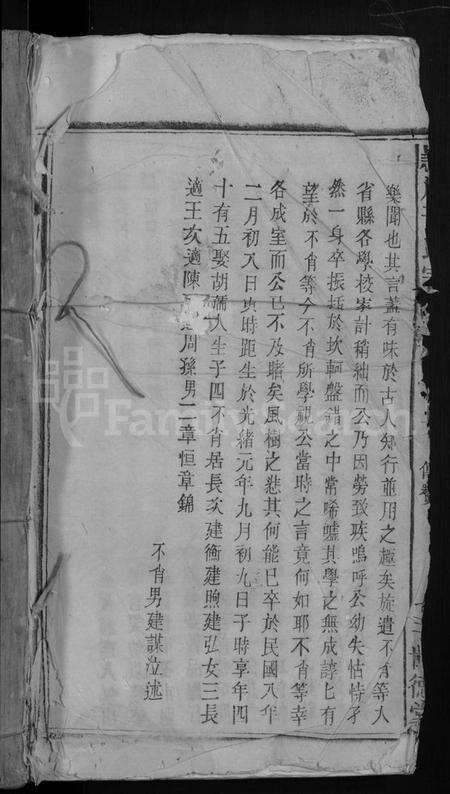 樂聞也其言蓋有味於古人知行並用之趣矣旋遣不肖等入
省縣各學校家計稍絀而公乃因勞致疾嗚呼公幼失怙恃孑
然一身卒振拔於坎軻盤錯之中常唏噓其學之無成諄上有
望於不肖等今不肖所學視公當時之言竟何如耶不肖等幸
各成室而公已不及睹矣風樹之悲其何能已卒於民國八年
二月初八日 時距生於光緒元年九月初九日子時享年四
十有五娶胡孺人生子四不肖居長次建衡建煦建弘女三長
適王次適陳 周孫男二章恒章錦
不肖男建謀泣述
FamilySearch